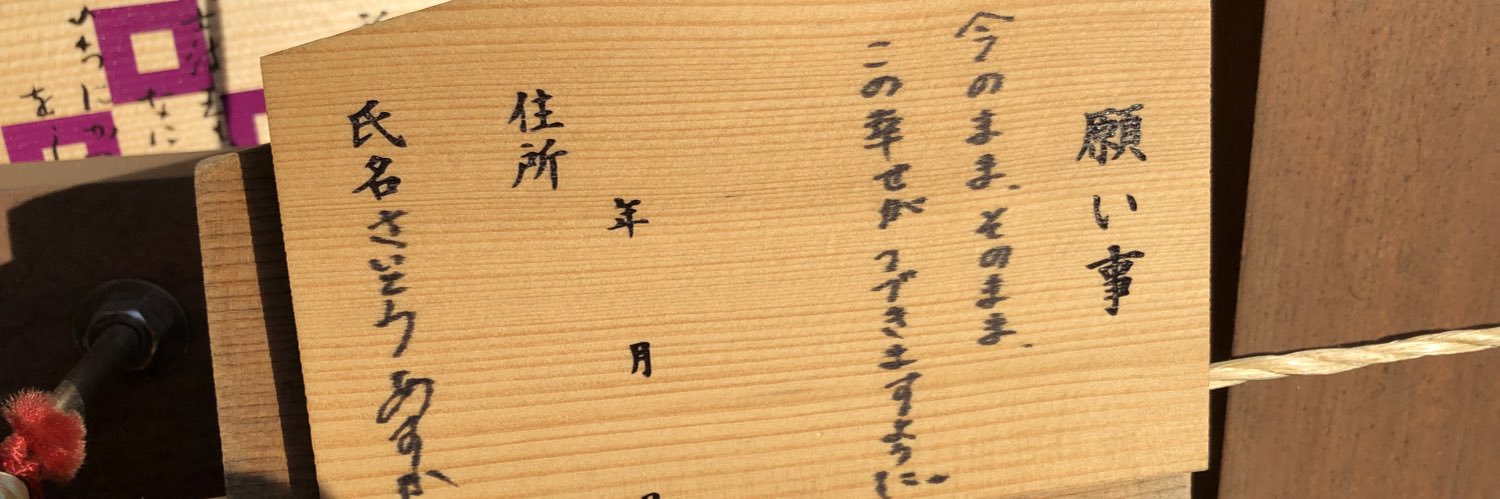 願い事
今のまま、そのまま、
この幸せが つづきますように
年 月
住所
氏名 さいとう あすか